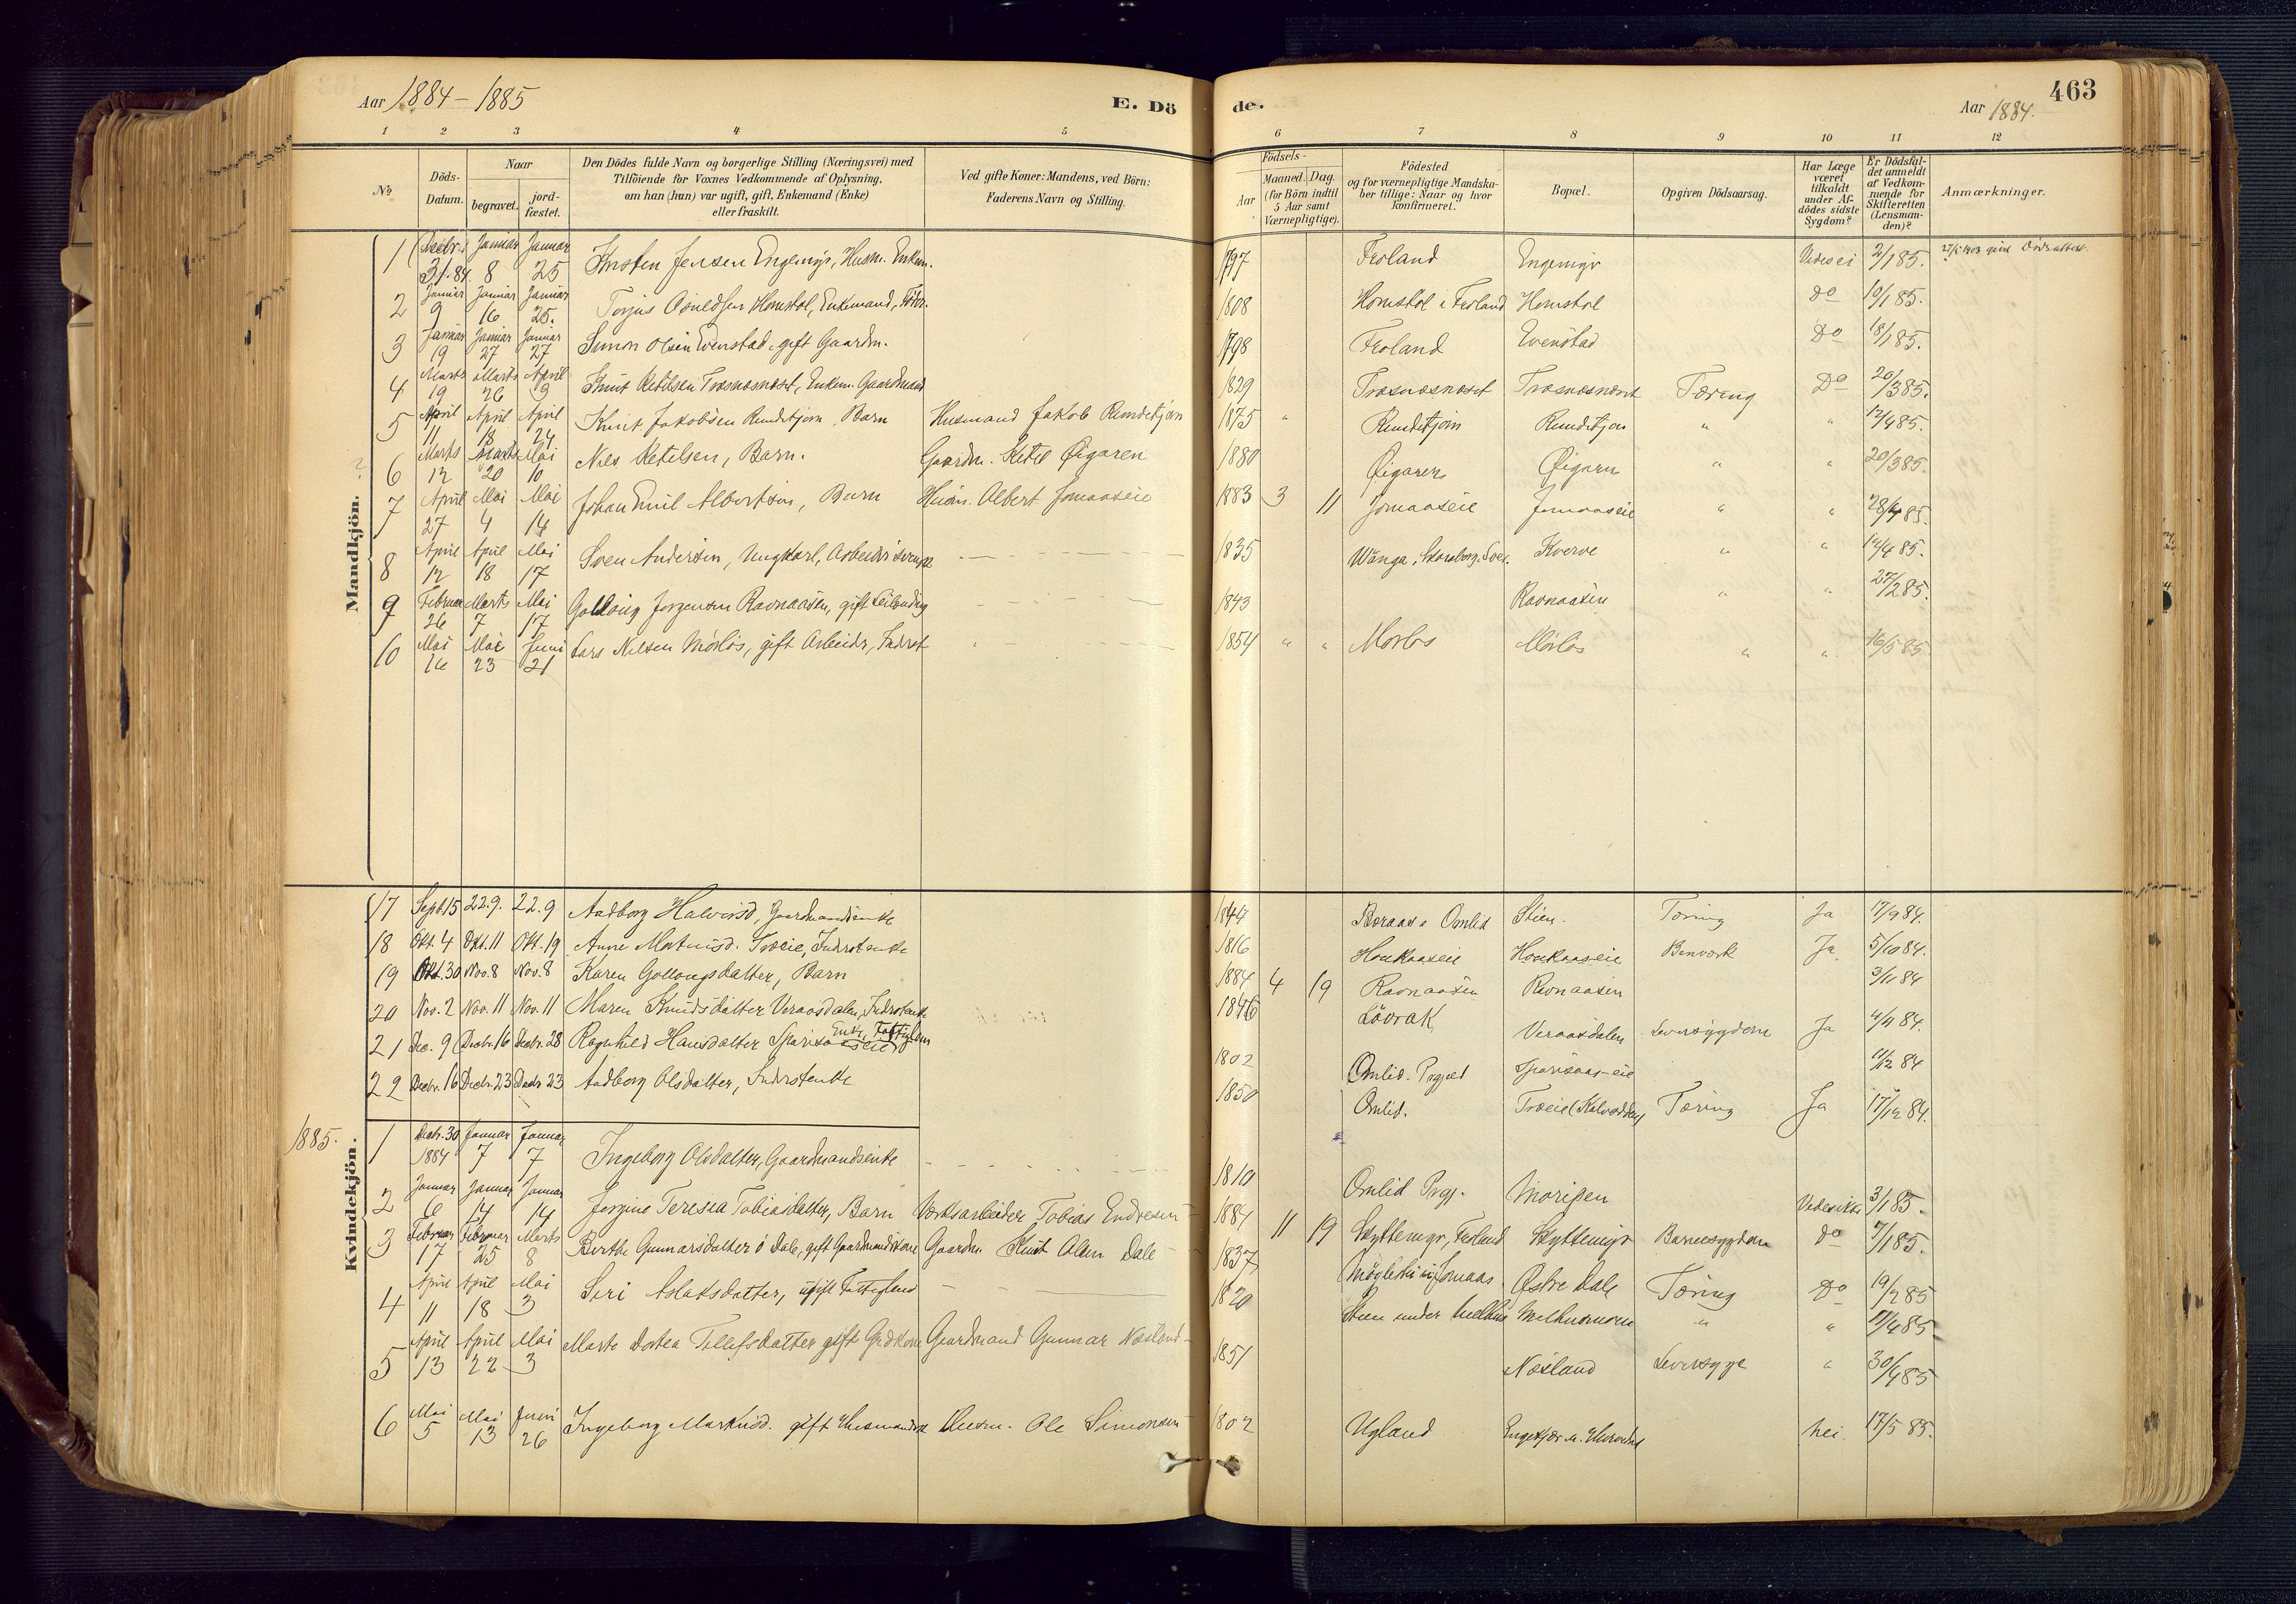 Aar 1884 - 1885
E. Dö
de.
Aar 1884.
463
1 2 3 4 5 6 7 8 9 10 11 12
No
Döds-
Datum.
Naar
begravet.
jord-
fæstet.
Den Dödes fulde Navn og borgerlige Stilling (Næringsvei) med
Tilföiende for Voxnes Vedkommende af Oplysning.
om han (hun) var ugift, gift, Enkemand (Enke)
eller fraskilt.
Ved gifte Koner: Mandens, ved Börn:
Faderens Navn og Stilling.
Födsels-
Aar
Maaned. Dag.
(for Börn indtil
5 Aar samt
Værnepligtige).
Födested
og for værnepligtige Mandska-
ber tillige: Naar og hvor
konfirmeret.
Bopæl.
Opgiven Dödsaarsag.
Har Læge
været
tilkaldt
under Af-
dödes sidste
Sygdom?
Er Dödsfal-
det anmeldt
af Vedkom-
mende for
Skifteretten
(Lensman-
den)?
Anmærkninger.
Mandkjön.
1 Decbr. 31. 84. Januar 8 Januar 25 Jensen Engemyr, Husm. Enkem. 1797 Froland Engemyr Vides ei 2/1 85.
2 Januar 9 Januar 16 Januar 25. Torjus Homstøl, Enkemand, 1808 Homstøl i Froland Homstøl Do 10/1 85.
3 Januar 19 Januar 27 Januar 27 Simon Olsen Evenstad, gift Gaardm. 1798 Froland Evenstad Do 18/1 85.
4 Marts 19 Marts 26 April 3 Knut Ketilsen Træsnæsnæset, Enkem. Gaardmand 1829 Træsnæsnæset Træsnæsnæset Tæring Do 20/3 85.
5 April 11 April 18 April 24 Knut Jakobsen Rundetjøn, Barn Husmand Jakob Rundetjøn 1875 " Rundetjøn Rundetjøn " " 12/4 85.
6 Marts 12 Marts 20 Mai 10 Nils Ketelsen, Barn. Gaardm. Ketil Øigaren 1880 Øigaren Øigarn " " 20/3 85.
7 April 27 Mai 4 Mai 14 Johan Emil Albertsen, Barn Husm. Albert Jomaaseie 1883 3 11 Jomaaseie Jomaaseie " " 28/4 85.
8 April 12 April 18 Mai 17 Sven Andersen, Ungkarl, Arbeider 1835 Wånga, Skaraborg. Sver. Kverve " " 12/4 85.
9 Februar 26 Marts 7 Mai 17 Golloug Jørgensen Ravnaasen, gift Leilænding 1843 Ravnaasen " " 27/2 85.
10 Mai 16 Mai 23 Juni 21 Lars Nilsen Mørløs, gift Arbeider, Inderst 1854 " " Mørløs Mørløs " " 16/5 85
Kvindekjön.
17 Sept. 15 22.9. 22.9 Aadborg Halvorsd, Gaardmandsenke 1847 Boraas i Omlid Stien. Tæring Ja 17/9 84.
18 Okt. 4 Okt. 11 Okt. 19 Anne Træeie, Inderstenke 1816 Haukaaseie Haukaaseie Ja 5/10 84.
19 Okt. 30 Nov. 8 Nov. 8 Karen Gollougsdatter, Barn 1884 4 19 Ravnaasen Ravnaasen 3/11 84
20 Nov. 2 Nov. 11 Nov. 11 Maren Knudsdatter Veraasdalen, Inderstenke 1846 Løvrak Veraasdalen Leversygdom Ja 4/11 84.
21 Dec. 9 Decbr. 16 Decbr. 28 Ragnhild Hansdatter Enke, Fattiglem 1802 Omlid. Prgjeld 11/12 84
22 Decbr. 16 Decbr. 23 Decbr 23 Aadborg Olsdatter, Inderstenke 1850 Omlid. Træeie Tæring Ja 17/12 84.
1885.
1 Decbr. 30 1884 Januar 7 Januar 7 Ingeborg Olsdatter, Gaardmandsenke 1810 Omlid Prgj. Vides ikke 3/1 85.
2 Januar 6 Januar 14 Januar 14 Jørgine Teresia Tobiasdatter, Barn Værksarbeider Tobias Endresen 1884 11 19 Skyttemyr, Froland Skyttemyr Barnesygdom do 7/1 85.
3 Februar 17 Februar 25 Marts 8 Berthe Gunnarsdatter ø Dale, gift Gaardmandskone Gaardm. Knut Olsen Dale 1837 Østre Dale Tæring Do 19/2 85
4 April 11 April 18 Mai 3 Siri Aslaksdatter, ugift Fattiglem 1820 Stien under " " 17/4 85
5 April 13 April 22 Mai 3 Marte Dortea Tellefsdatter gift Grdkone Gaardmand Gunnar Næsland 1851 Næsland Leversyge " 30/4 85
6 Mai 5 Mai 13 Juni 26 Ingeborg Markusd. gift Husmandsk Husm. Ole Simonsen 1802 Ugland Nei. 17/5 85.